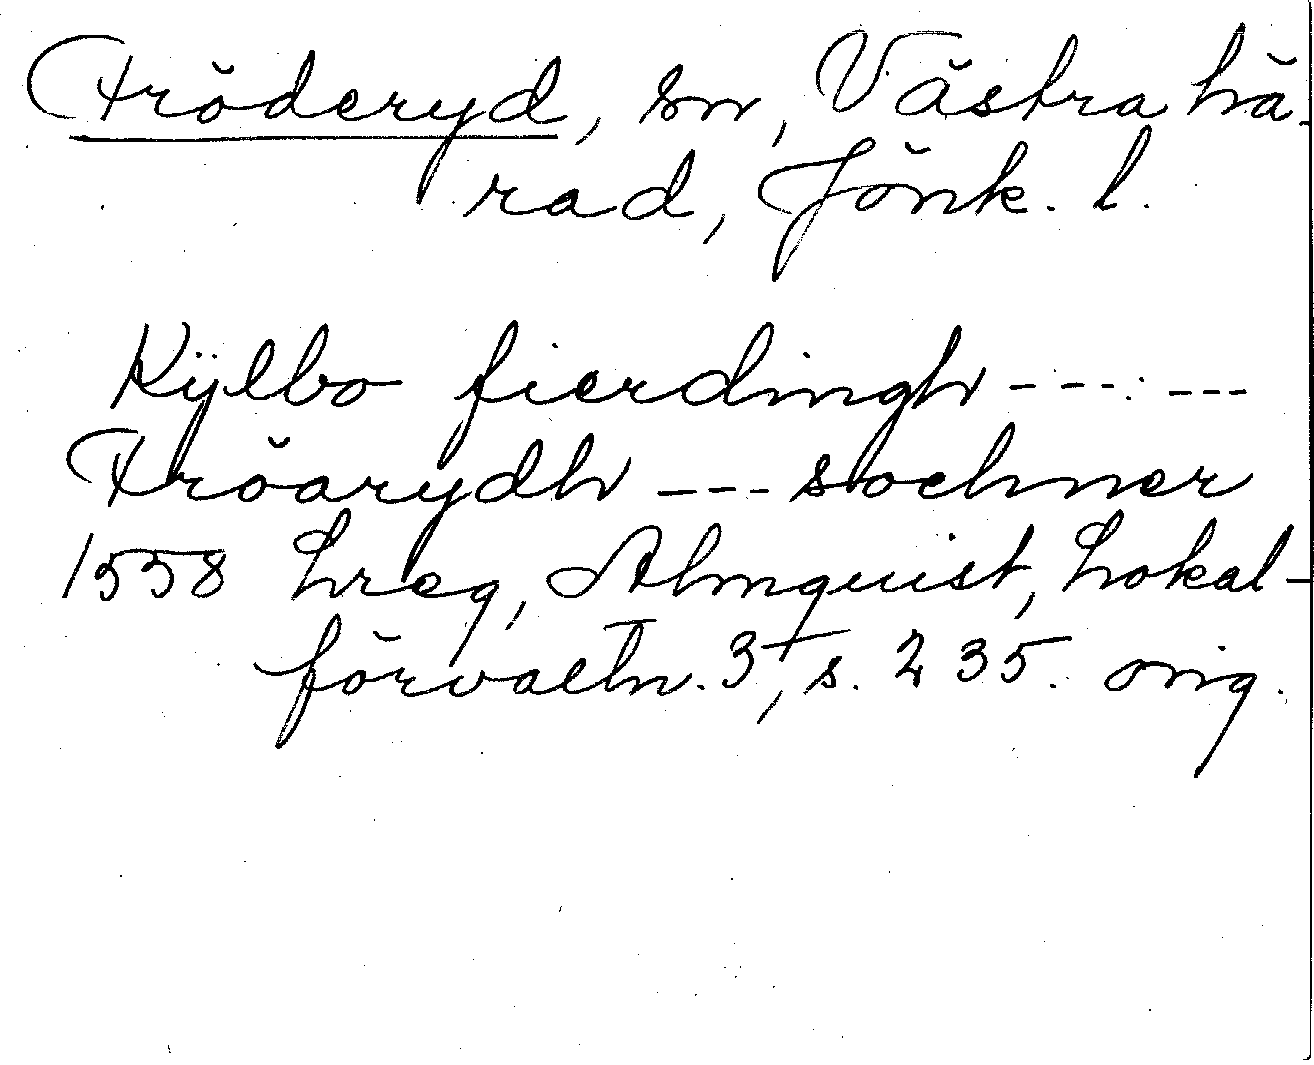 Fröderyd, sn, Västra hä-
rad, Jönk. l.
Kÿlbo fierdingh --- ---
Fröarydh --- sochner
1558 Lreg, Almquist, Lokal-
förvaltn. 3, s. 235. orig.